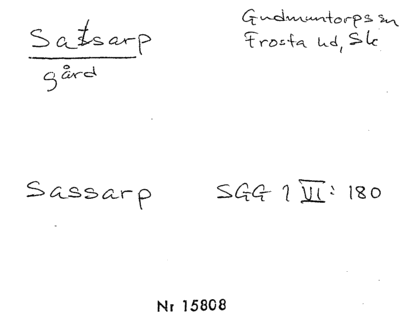 Satsarp
gård
Gudmuntorps sn
Frosta hd, Sk
Sassarp SGG 1 VI: 180
Nr 15808